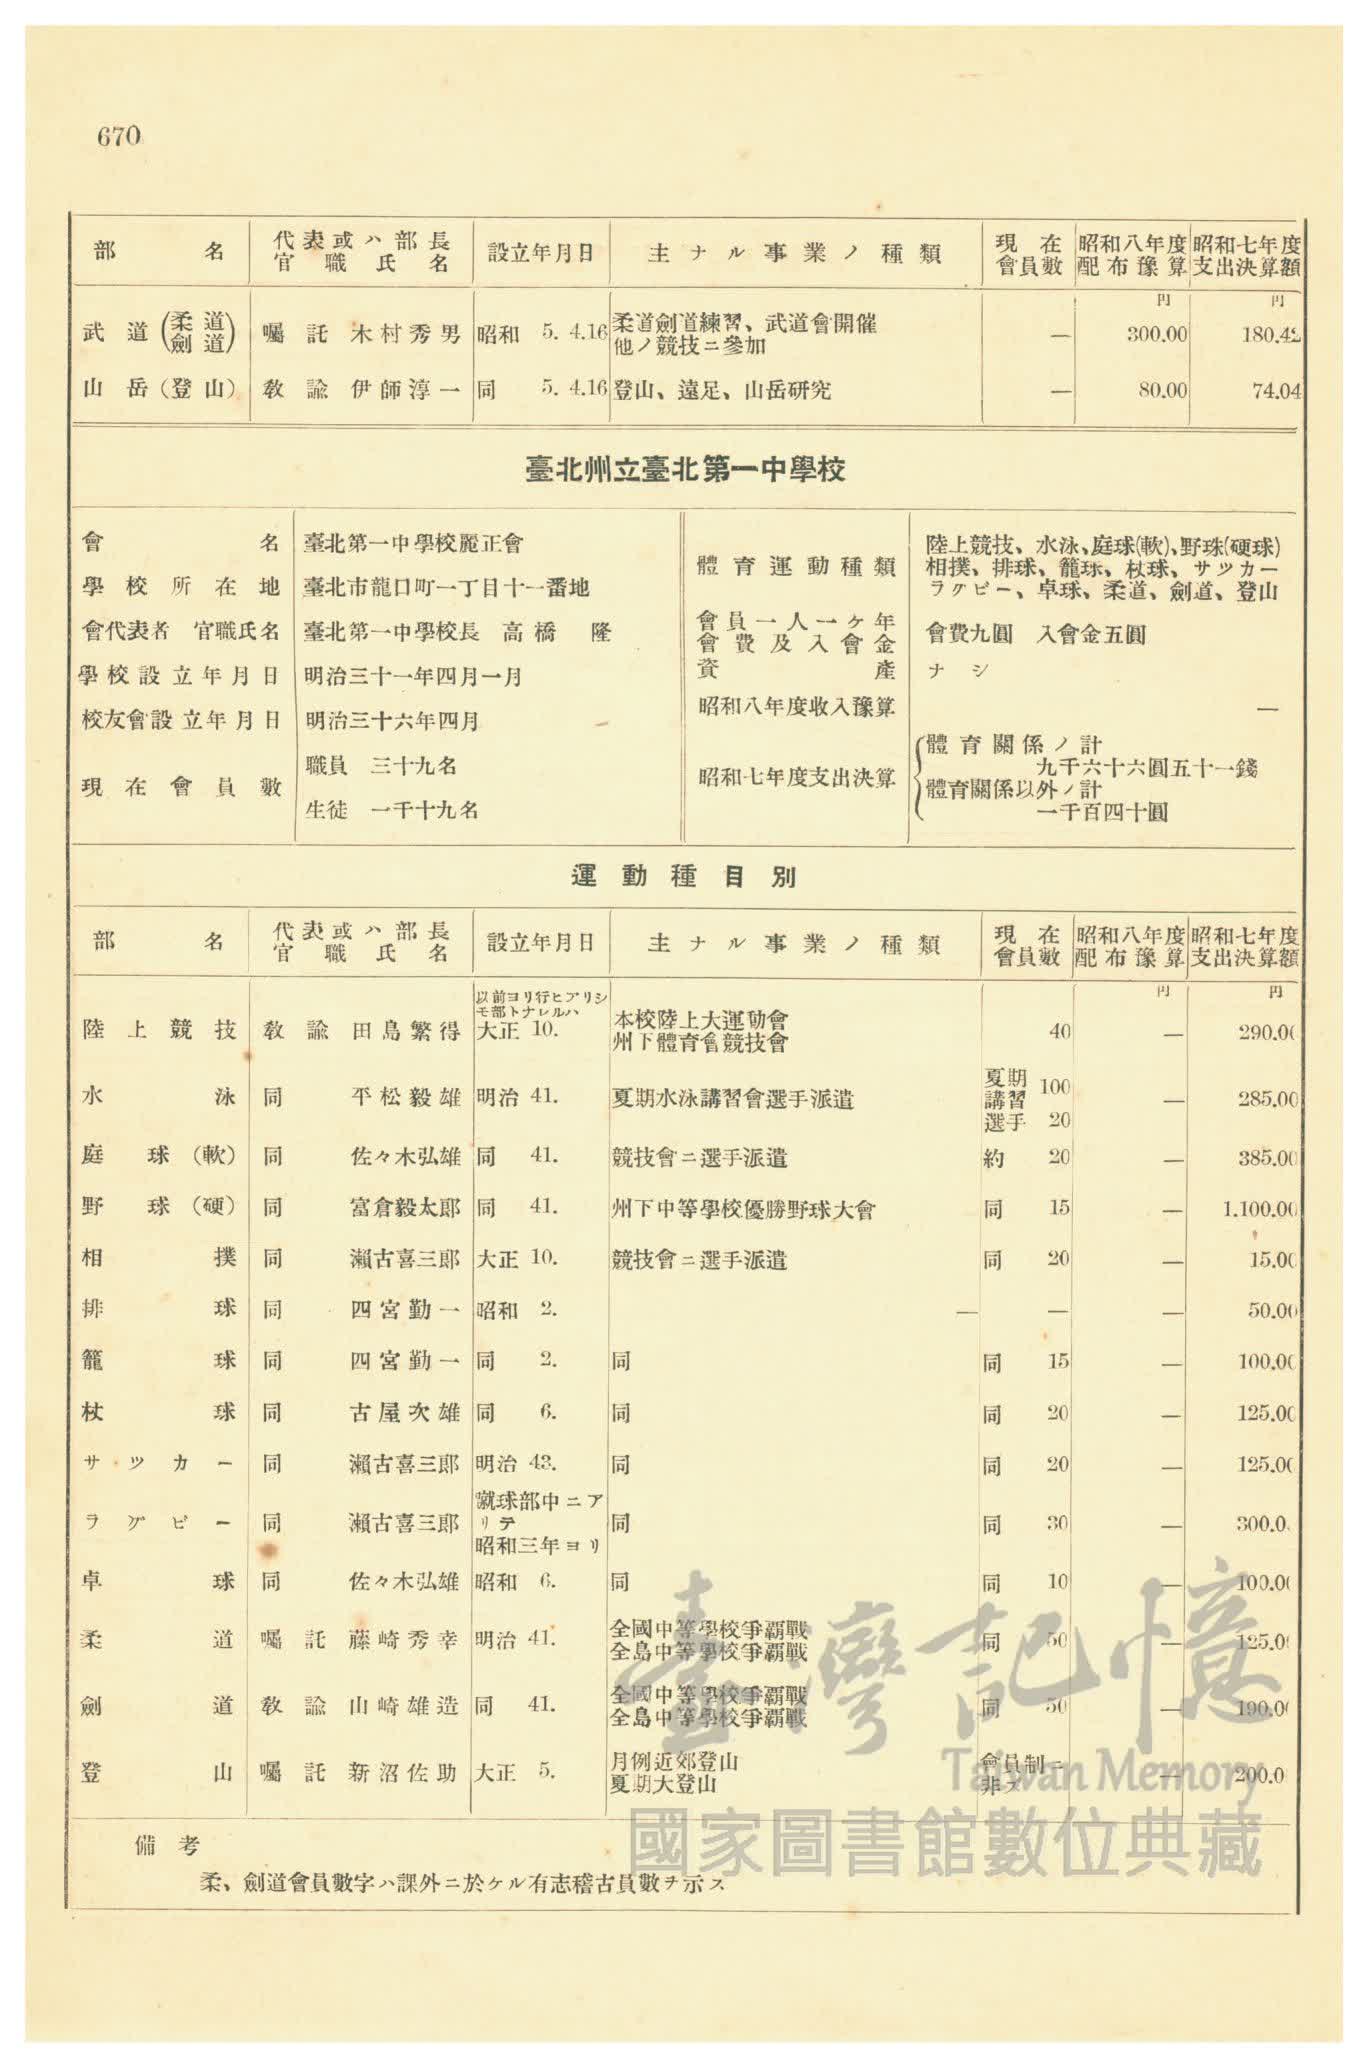 670
部名 代表或ハ部長官職氏名 設立年月日 主ナル事業ノ種類 現在會員數 昭和八年度配布豫算 昭和七年度支出決算額
円 円
武道(柔道劍道) 囑託 木村秀男 昭和 5. 4.16 柔道劍道練習、武道會開催 — 300.00 180.42
他ノ競技ニ參加
山岳(登山) 教諭 伊師淳一 同 5. 4.16 登山、遠足、山岳研究 — 80.00 74.04
臺北州立臺北第一中學校
會名 臺北第一中學校麗正會
學校所在地 臺北市龍口町一丁目十一番地
會代表者 官職氏名 臺北第一中學校長 高橋 隆
學校設立年月日 明治三十一年四月一月
校友會設立年月日 明治三十六年四月
現在會員數 職員 三十九名
生徒 一千十九名
體育運動種類 陸上競技、水泳、庭球(軟)、野球(硬球)
相撲、排球、籠球、杖球、サツカー
ラグビー、卓球、柔道、劍道、登山
會員一人一ケ年會費及入會金 會費九圓 入會金五圓
資產 ナシ
昭和八年度收入豫算 —
昭和七年度支出決算 體育關係ノ計
九千六十六圓五十一錢
體育關係以外ノ計
一千百四十圓
運動種目別
部名 代表或ハ部長官職氏名 設立年月日 主ナル事業ノ種類 現在會員數 昭和八年度配布豫算 昭和七年度支出決算額
円 円
以前ヨリ行ヒアリシ
モ部トナレルハ
陸上競技 教諭 田島繁得 大正 10. 本校陸上大運動會 40 — 290.00
州下體育會競技會
水泳 同 平松毅雄 明治 41. 夏期水泳講習會選手派遣 夏期講習 100 — 285.00
選手 20
庭球(軟) 同 佐々木弘雄 同 41. 競技會ニ選手派遣 約 20 — 385.00
野球(硬) 同 富倉毅太郎 同 41. 州下中等學校優勝野球大會 同 15 — 1.100.00
相撲 同 瀨古喜三郎 大正 10. 競技會ニ選手派遣 同 20 — 15.00
排球 同 四宮勤一 昭和 2. — — — 50.00
籠球 同 四宮勤一 同 2. 同 同 15 — 100.00
杖球 同 古屋次雄 同 6. 同 同 20 — 125.00
サツカー 同 瀨古喜三郎 明治 43. 同 同 20 — 125.00
蹴球部中ニア
ラグビー 同 瀨古喜三郎 リテ 同 同 30 — 300.0
昭和三年ヨリ
卓球 同 佐々木弘雄 昭和 6. 同 同 10 — 100.00
柔道 囑託 藤崎秀幸 明治 41. 全國中等學校爭霸戰 同 50 — 125.0
全島中等學校爭霸戰
劍道 教諭 山崎雄造 同 41. 全國中等學校爭霸戰 同 50 — 190.00
全島中等學校爭霸戰
登山 囑託 新沼佐助 大正 5. 月例近郊登山 會員制ニ — 200.0
夏期大登山 非ズ
備考
柔、劍道會員數字ハ課外ニ於ケル有志稽古員數ヲ示ス
臺灣記憶
Taiwan Memory
國家圖書館數位典藏